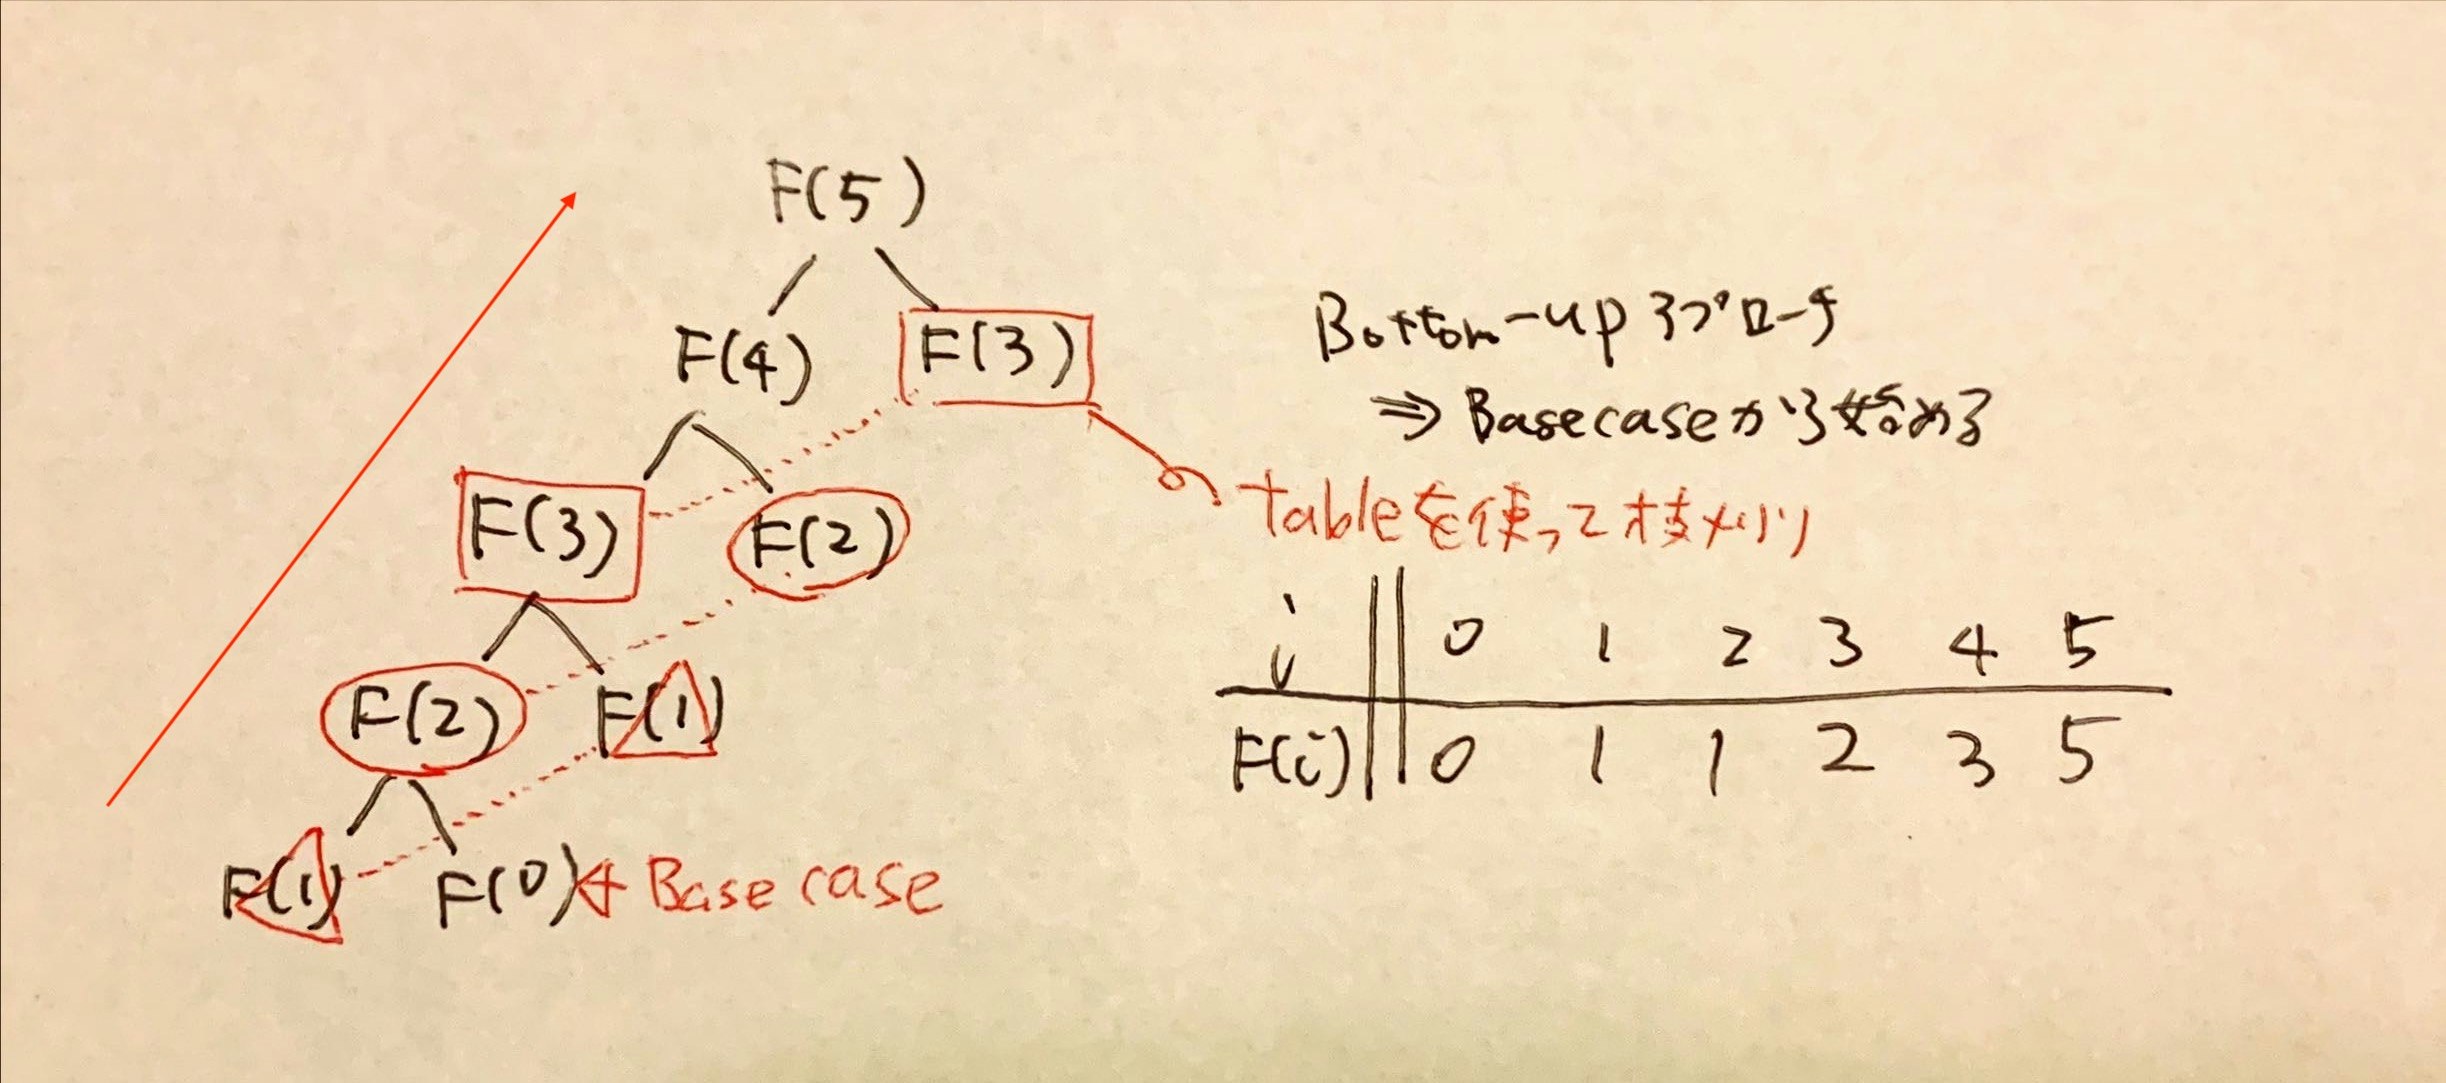 F(5)
F(4) F(3)
F(3) F(2)
F(2) F(1)
F(1) F(0) ← Base case
Bottom-up アプローチ
⇒ Basecaseから始める
tableを使って枝刈り
i 0 1 2 3 4 5
F(i) 0 1 1 2 3 5